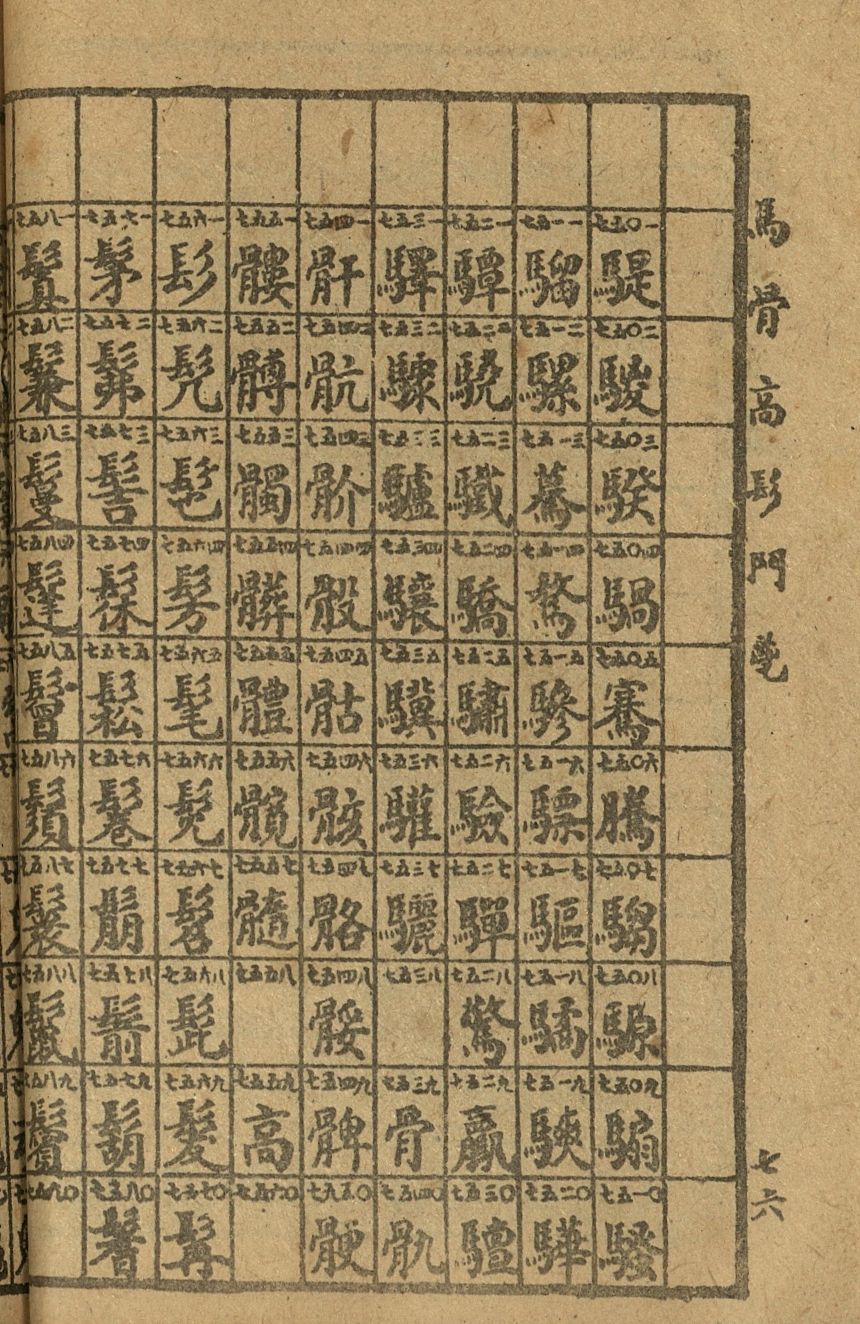 馬骨高髟門鬯 七六
七五〇一 騠 七五〇二 騣 七五〇三 騤 七五〇四 騧 七五〇五 騫 七五〇六 騰 七五〇七 騶 七五〇八 騵 七五〇九 騸 七五一〇 騷
七五一一 騮 七五一二 騾 七五一三 驀 七五一四 驁 七五一五 驂 七五一六 驃 七五一七 驅 七五一八 驈 七五一九 騻 七五二〇 驊
七五二一 驔 七五二二 驍 七五二三 驖 七五二四 驕 七五二五 驌 七五二六 驗 七五二七 驒 七五二八 驚 七五二九 驘 七五三〇 驙
七五三一 驛 七五三二 驟 七五三三 驢 七五三四 驤 七五三五 驥 七五三六 驩 七五三七 驪 七五三八 七五三九 骨 七五四〇 骩
七五四一 骭 七五四二 骯 七五四三 骱 七五四四 骰 七五四五 骷 七五四六 骸 七五四七 骼 七五四八 七五四九 髀 七九五〇 骾
七五五一 髏 七五五二 髆 七五五三 髑 七五五四 髒 七五五五 體 七五五六 髖 七五五七 髓 七五五八 七五五九 高 七五六〇
七五六一 髟 七五六二 髡 七五六三 髢 七五六四 髣 七五六五 髦 七五六六 髧 七五六七 髫 七五六八 髭 七五六九 髮 七五七〇 髯
七五七一 髳 七五七二 髴 七五七三 髻 七五七四 髹 七五七五 鬆 七五七六 鬈 七五七七 鬅 七五七八 鬋 七五七九 鬍 七五八〇 鬐
七五八一 鬒 七五八二 鬑 七五八三 鬘 七五八四 鬔 七五八五 鬙 七五八六 鬚 七五八七 鬟 七五八八 鬣 七五八九 鬢 七五九〇